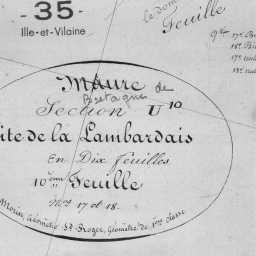 - 35 -
Ille-et-Vilaine
Feuille
Maure
de
Bretagne
Section U 10
ite de la Lambardais
En Dix feuilles
10ème Feuille
Nos 17 et 18.
Géomètre de 1ère classe